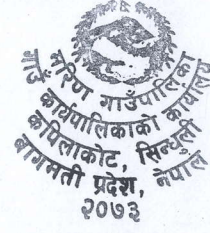 मरिण गाउँपालिका
गाउँ कार्यपालिकाको कार्यालय
कपिलाकोट, सिन्धुली
बागमती प्रदेश, नेपाल
२०७३